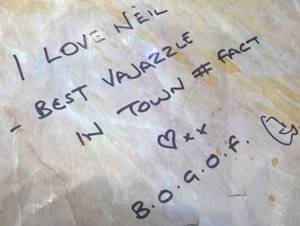 I LOVE NEIL
- BEST VAJAZZLE
IN TOWN # FACT
♡xx
B.O.G.O.F.